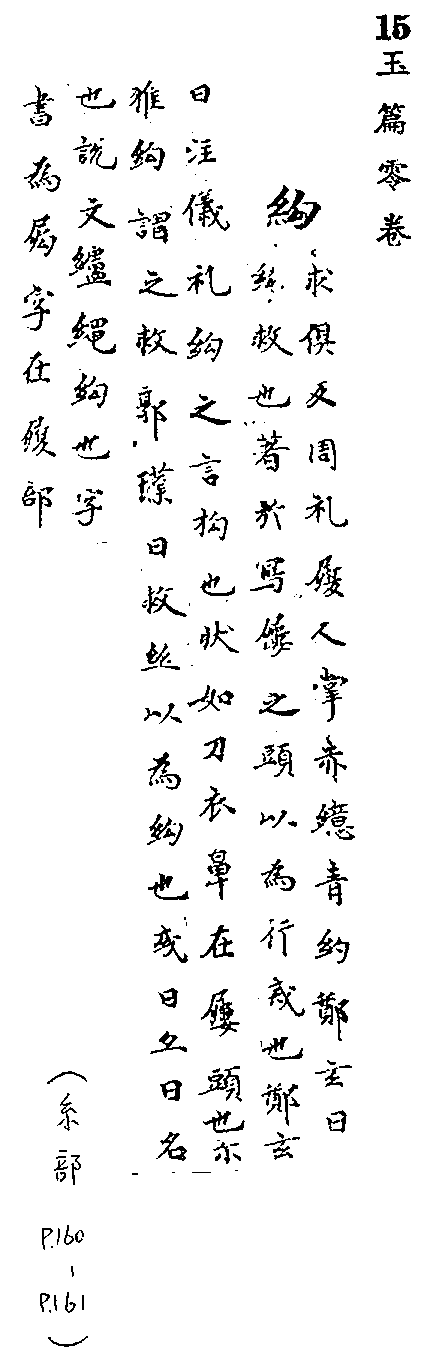 15 玉篇零卷
絇
求俱反周礼屨人掌赤繶青絇鄭玄曰
絇救也著於舄屨之頭以為行戒也鄭玄
曰注儀礼絇之言拘也狀如刀衣鼻在屨頭也尒
雅絇謂之救郭璞曰救絲以為絇也或曰亦曰名
也說文纑繩絇也字
書為𡲬字在履部
(糸部 P.160-P.161)